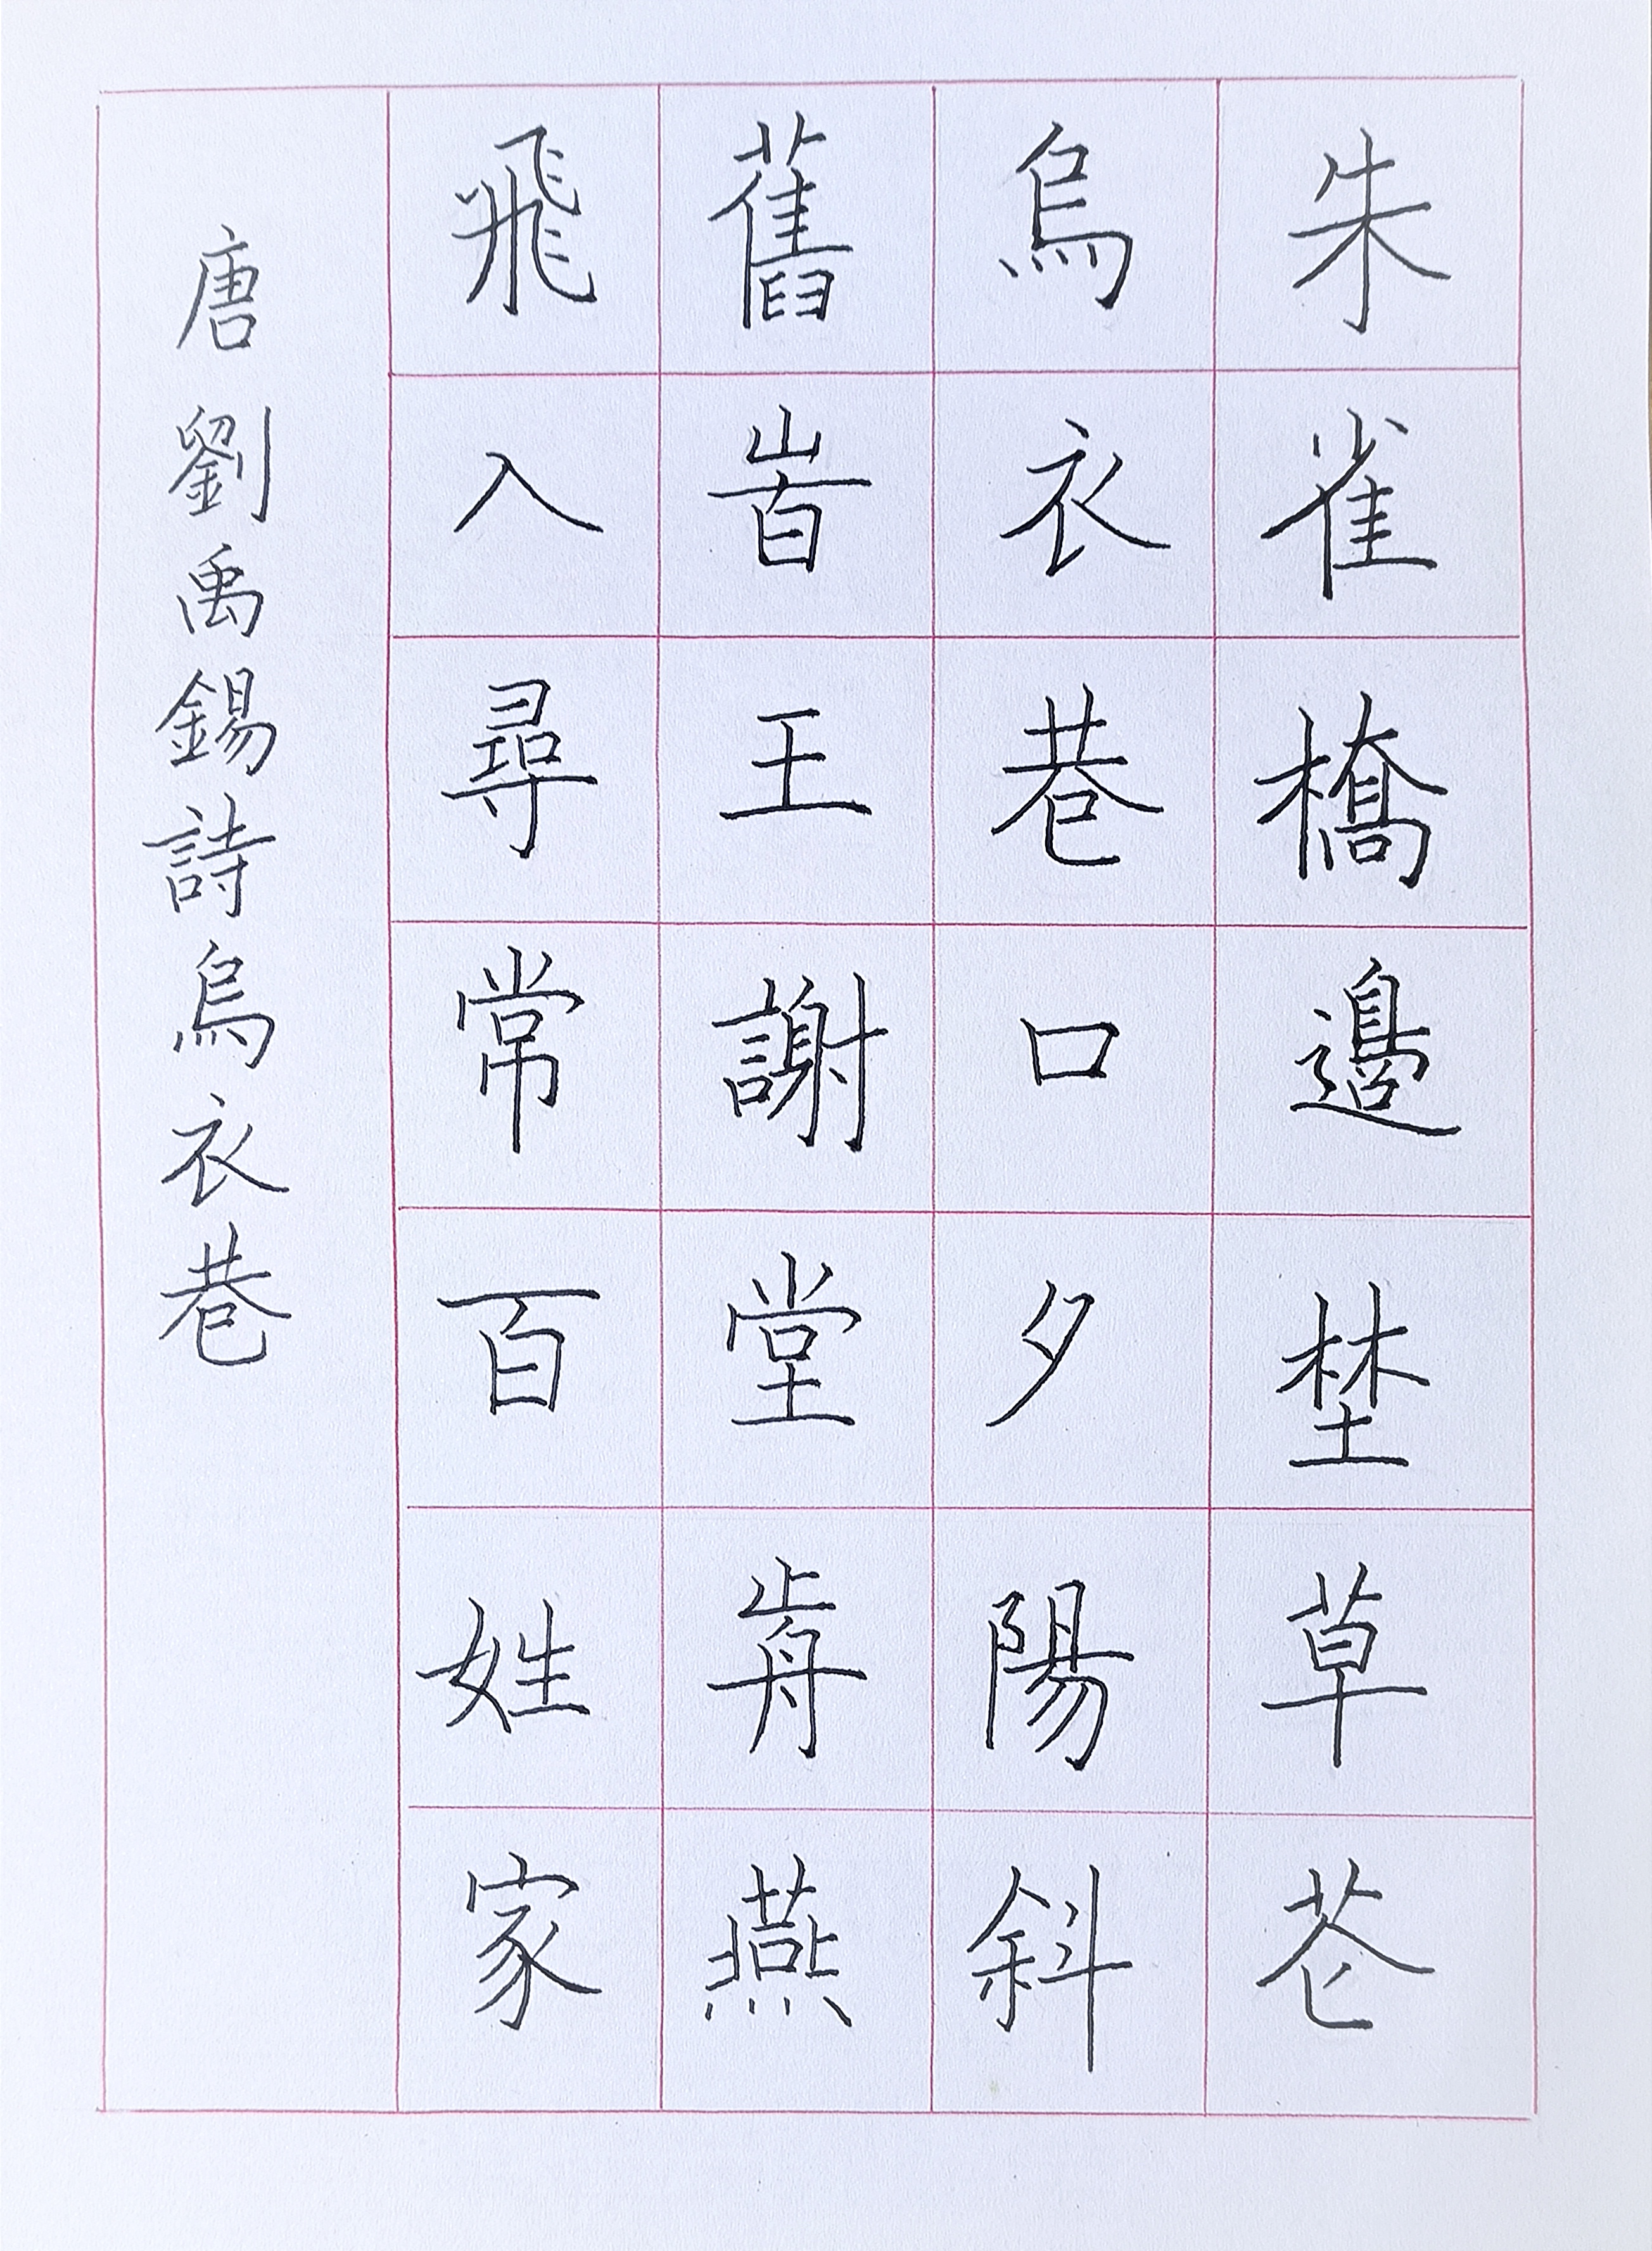 朱雀橋邊埜草花
烏衣巷口夕陽斜
舊旹王謝堂歬燕
飛入尋常百姓家
唐劉禹錫詩烏衣巷